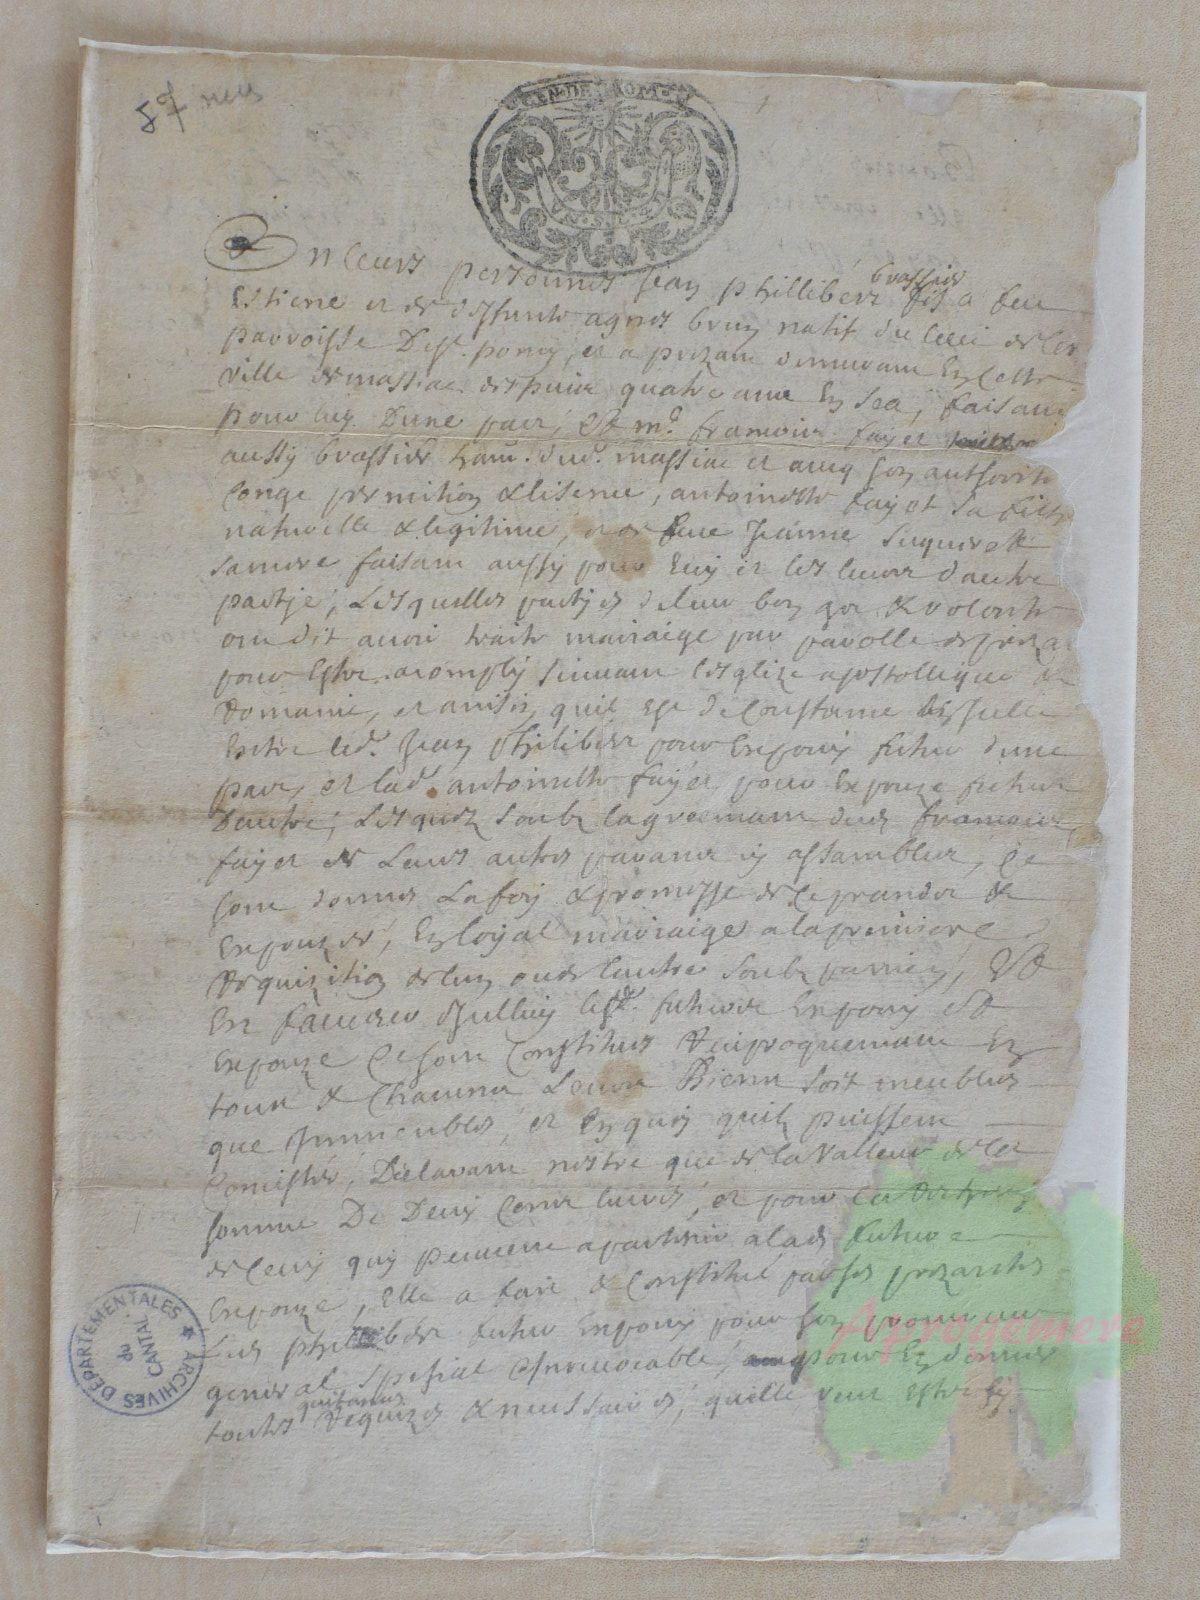 87 neu
GEN·DE·RIOM
En leurs personnes Jean phillibert brassier fils a feu
Estiene et de deffunte agnes brun natif du lieu de
parroisse De st. poncy, et a prezant demurant En cette
ville de massiac despuis quatre ans En sea, faisant
pour luy Dune part, Et me. francois fayet
aussy brassier habt. dud. massiac et avec son authorité
Conge permition & lisence, antoinette fayet sa fille
naturelle & legitime, et de feue Jeanne
sa mere faisant aussy pour Luy et les leurs dautre
partje, Lesquelles partjes de leur bon gre & volonté
ont dit avoir traite mariaige par parolle de prezant
pour Estre acomply suivant lesglize apostollique &
Romaine, et ainsin quil est de Coustume
Entre led. Jean philibert pour Expoux futur dune
part, et lad. antoinette fayet pour Expouze future
Dautre, Lesquelz soubz lagreemant dud. francois
fayet et Leurs autres parans yˑ assambles, Se
sont donnes La foy & promesse de se prandre &
Expouzer, En loyal mariaige a la premiere
Requizition de lun ou de lautre soubz
En faveur dicelluy lesd. futurs Expoux Et
Expouze Se sont Constitues Reciproquemant En
tous & Chacuns Leurs Biens soit meubles
que Immeubles, et En quoy quilz puissent
Concister, Declarant nestre que de la valleur de la
somme De Deux Cens livres, et pour la
de Ceux quy peuvent apartenir a lad. future
Expouze, Elle a fait & Constitué par ses prezantes
Led. philibert futur Expoux pour son procureur
general special & Irrevocable, pour En donner
toutes quitances requizes & neussaires, quelle veut Estre
ARCHIVES DEPARTEMENTALES
DU CANTAL
Aprogemere